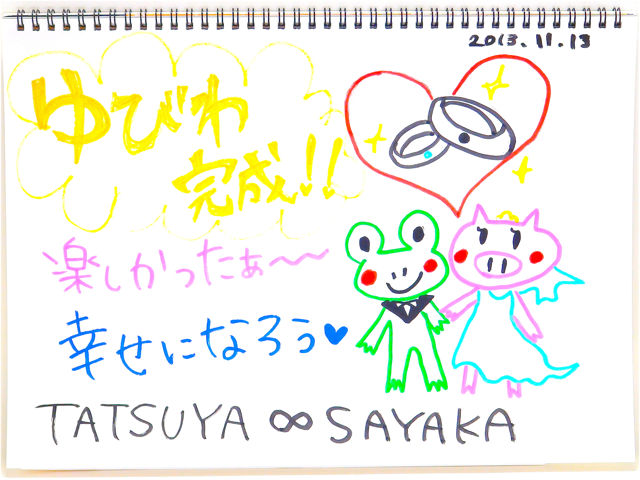 2013.11.13
ゆびわ
完成!!
楽しかったぁ〜〜
幸せになろう♥
TATSUYA ∞ SAYAKA